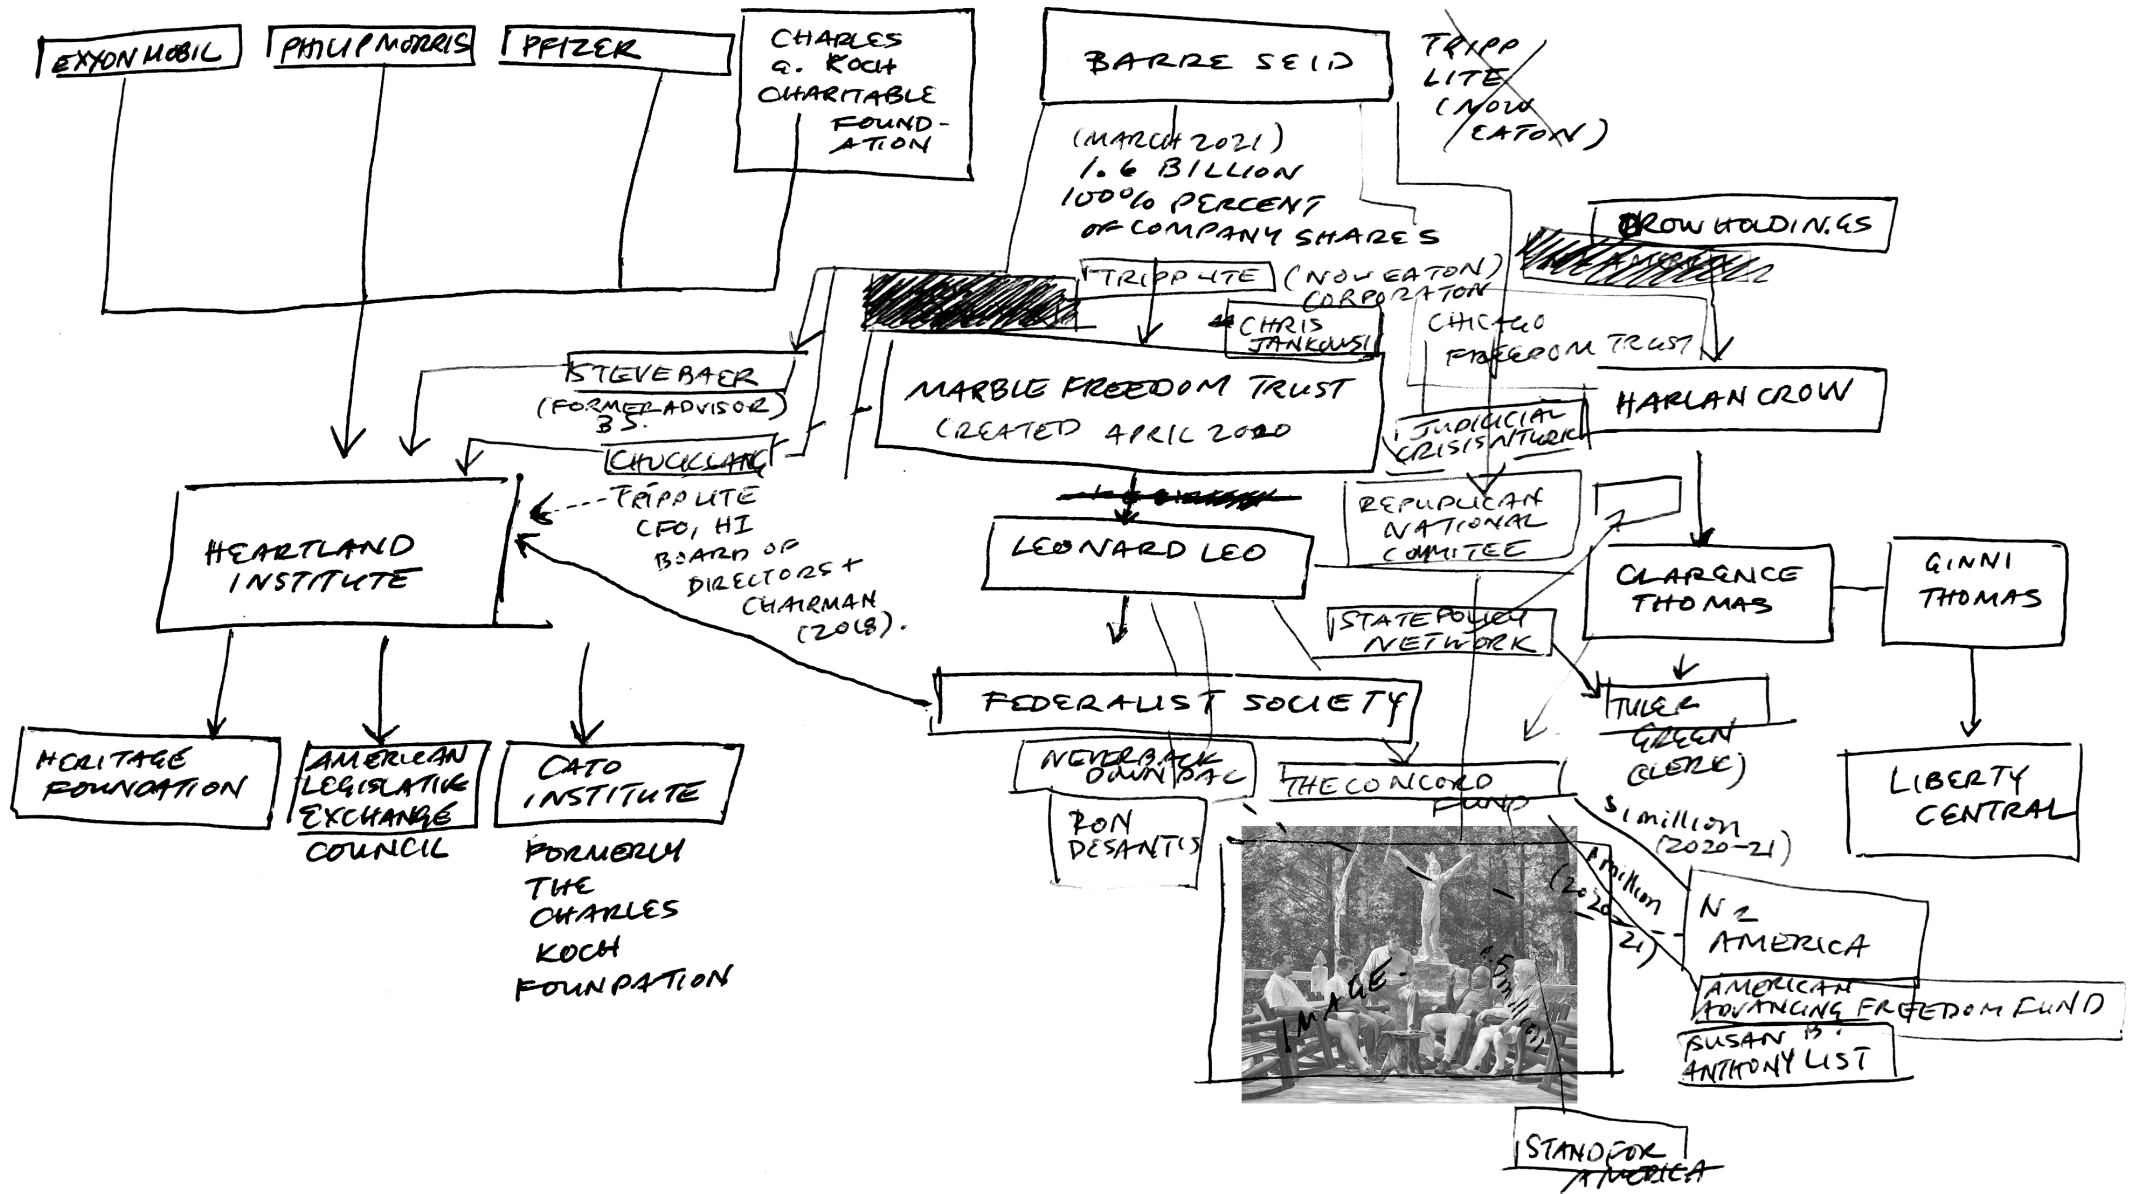 EXXON MOBIL
PHILIP MORRIS
PFIZER
CHARLES
G. KOCH
CHARITABLE
FOUND-
ATION
BARRE SEID
TRIPP
LITE
(NOW
EATON)
(MARCH 2021)
1.6 BILLION
100% PERCENT
OF COMPANY SHARES
TRIPP LITE (NOW EATON)
CORPORATON
CROW HOLDINGS
CHRIS
JANKOWSI
CHICAGO
FREEDOM TRUST
STEVE BAER
(FORMER ADVISOR)
BS.
MARBLE FREEDOM TRUST
CREATED APRIL 2020
HARLAN CROW
JUDICICIAL
CRISIS NTWRK
CHUCK LANG
TRIPP LITE
CFO, HI
BOARD OF
DIRECTORS +
CHAIRMAN
(2018).
HEARTLAND
INSTITUTE
LEONARD LEO
REPUBLICAN
NATIONAL
COMMITEE
CLARENCE
THOMAS
GINNI
THOMAS
STATE POLICY
NETWORK
FEDERALIST SOCIETY
TYLER
GREEN
(CLERK)
HERITAGE
FOUNDATION
AMERICAN
LEGISLATIVE
EXCHANGE
COUNCIL
CATO
INSTITUTE
FORMERLY
THE
CHARLES
KOCH
FOUNDATION
NEVER BACK
DOWN PAC
RON
DESANTIS
THE CONCORD
FUND
LIBERTY
CENTRAL
$1 million
(2020-21)
1 million
(2020-
21)
IMAGE.
.5 million
N2
AMERICA
AMERICAN
ADVANCING FREEDOM FUND
SUSAN B.
ANTHONY LIST
STAND FOR
AMERICA